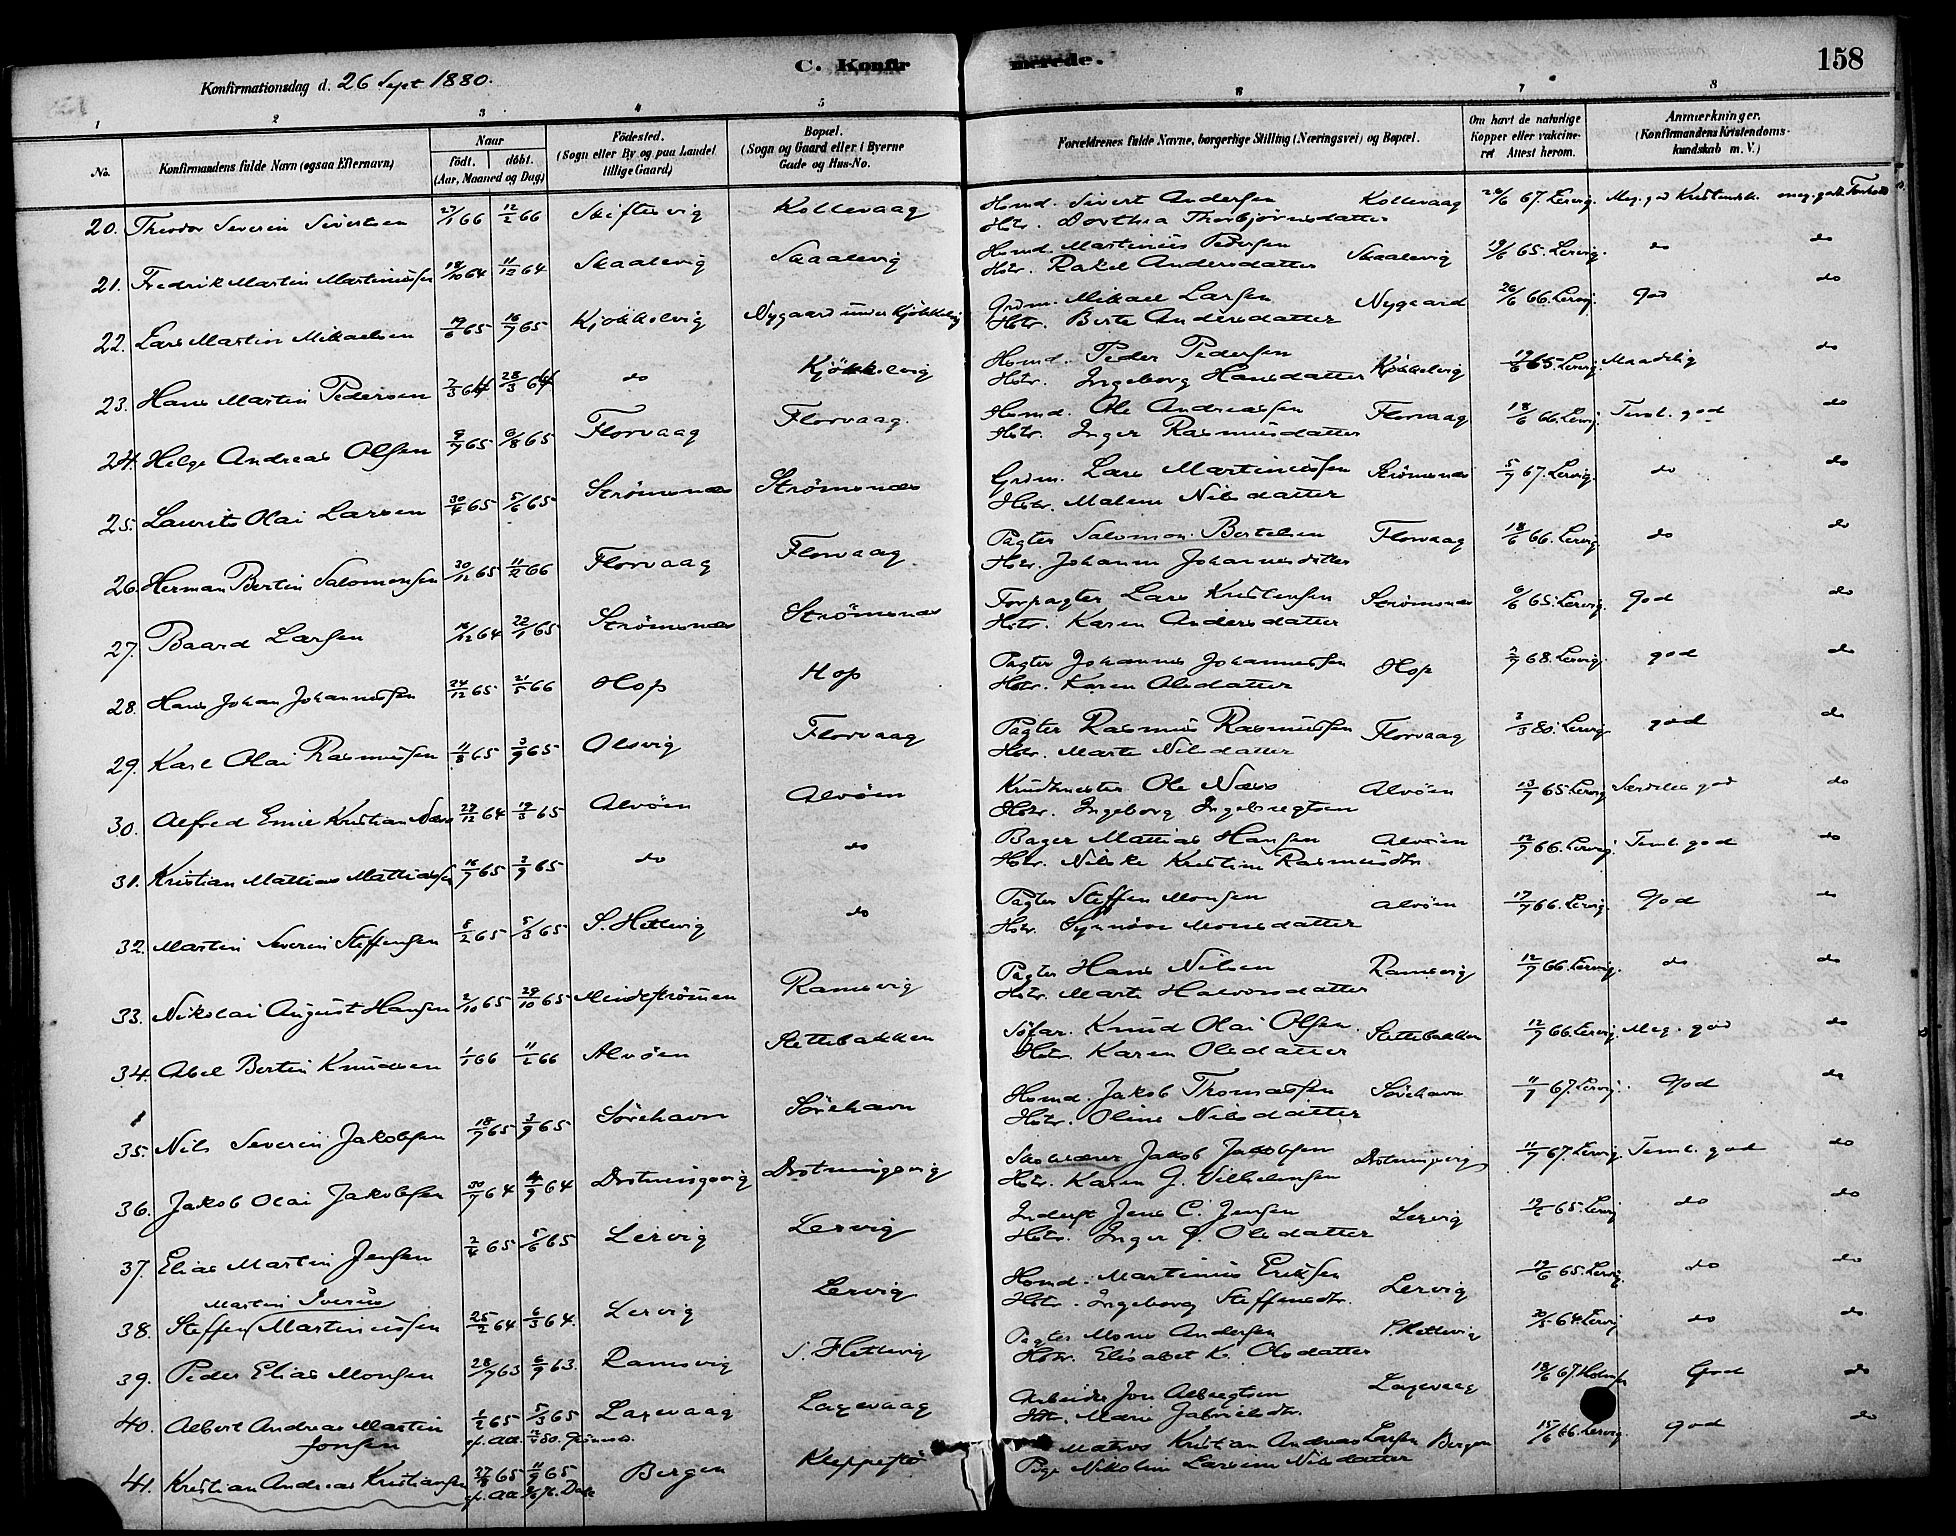 158
Konfirmationsdag d. 26 Sept 1880.
C. Konfirmerede.
1 2 3 4 5 6 7 8
No.
Konfirmandens fulde Navn (ogsaa Efternavn)
Naar
født. døbt.
(Aar, Maaned og Dag)
Fødested.
(Sogn eller By og paa Landet
tillige Gaard)
Bopæl.
(Sogn og Gaard eller i Byerne
Gade og Hus-No.
Forældrenes fulde Navne, borgerlige Stilling (Næringsvei) og Bopæl.
Om havt de naturlige
Kopper eller vakcine-
ret Attest herom.
Anmerkninger.
(Konfirmandens Kristendoms-
kundskab m. V.)
20. Theodor Severin Sivertsen 27/1 66 12/2 66 Skiftesvig Kollevaag Hsmd. Sivert Andersen Kollevaag 26/6 67. Lervig. Meg. god Kristendsk. meg. godt Forhold
Hstr. Dorthea Thorbjørnsdatter
21. Fredrik Martin Martinussen 18/10 64 11/12 64 Skaalevig Skaalevig Hsmd. Martinus Pedersen Skaalevig 19/6 65. Lervig. do do
Hstr. Rakel Andersdatter
22. Lars Martin Mikaelsen 19/6 65 16/7 65 Kjøkkelvig Nygaard under Kjøkkelvig Grdm. Mikael Larsen Nygaard 26/6 66. Lervig. God do
Hstr. Berte Andersdatter
23. Hans Martin Pedersen 7/3 64 28/3 64 do Kjøkkelvig Hsmd. Peder Pedersen Kjøkkelvig 19/6 65. Lervig. Maadelig do
Hstr. Ingeborg Hansdatter
24. Helge Andreas Olsen 9/7 65 6/8 65 Florvaag Florvaag Hsmd. Ole Andreassen Florvaag 18/6 66. Lervig. Teml. god do
Hstr. Inger Rasmusdatter
25. Laurits Olai Larsen 30/4 65 5/6 65 Strømsnæs Strømsnæs Grdm. Lars Martinussen Strømsnæs 5/7 67. Lervig. do do
Hstr. Malene Nilsdatter
26. Herman Bertin Salomonsen 20/12 65 11/2 66 Florvaag Florvaag Pagter Salomon Bertelsen Florvaag 18/6 66. Lervig. do do
Hstr. Johanne Johannesdatter
27. Baard Larsen 16/12 64 22/1 65 Strømsnæs Strømsnæs Forpagter Lars Kristensen Strømsnæs 6/6 65. Lervig. God do
Hstr. Karen Andersdatter
28. Hans Johan Johannessen 24/12 65 21/5 66 Hop Hop Pagter Johannes Johannessen Hop 2/7 68. Lervig. god do
Hstr. Karen Olsdatter
29. Karl Olai Rasmussen 11/8 65 3/9 65 Olsvig Florvaag Pagter Rasmus Rasmussen Florvaag 3/3 80. Lervig god do
Hstr. Marte Nilsdatter
30. Alfred Emil Kristian Næss 29/12 64 19/3 65 Alvøen Alvøen Krudtmester Ole Næss Alvøen 13/7 65 Lervig Særdeles god do
Hstr. Ingeborg Ingebregtsen
31. Kristian Mattias Mattiassen 16/7 65 3/9 65 do do Bager Mattias Hansen Alvøen 12/7 66. Lervig. Teml. god do
Hstr. Nilske Kristine Rasmusdtr.
32. Martin Severin Steffensen 5/2 65 5/3 65 S. Hetlevig do Pagter Steffen Monsen Alvøen 17/7 66. Lervig. God do
Hstr. Synnøve Monsdatter
33. Nikolai August Hansen 2/10 65 29/10 65 Mindestrømen Ramsvig Pagter Hans Nilsen Ramsvig 12/7 66. Lervig. do do
Hstr. Marte Halvorsdatter
34. Abel Bertin Knudsen 1/1 66 11/2 66 Alvøen Slettebakken Søfar. Knud Olai Olsen Slettebakken 12/7 66. Lervig. Meg. god do
Hstr. Karen Olsdatter
35. Nils Severin Jakobsen 18/7 65 3/9 65 Sørehavn Sørehavn Hsmd. Jakob Thomassen Sørehavn 11/7 67. Lervig. God do
Hstr. Oline Nilsdatter
36. Jakob Olai Jakobsen 30/7 64 4/9 64 Drotningsvig Drotningsvig Skolelærer Jakob Jakobsen Drotningsvig 11/7 67. Lervig. Teml. god do
Hstr. Karen J. Vilhelmsen
37. Elias Martin Jensen 2/4 65 5/6 65 Lervig Lervig Inderst Jens C. Jensen Lervig 19/6 65. Lervig do do
Hstr. Inger J. Olsdatter
Martin Iverus
38. Steffen Martinussen 25/2 64 6/3 64. Lervig Lervig Hsmd. Martinus Eriksen Lervig 19/6 65. Lervig do do
Hstr. Ingeborg Steffensdtr.
39. Peder Elias Monsen 28/7 63 6/9 63. Ramsvig S. Hetlevig Pagter Mons Andersen S. Hetlevig 20/5 64. Lervig do do
Hstr. Elisabet K. Olsdatter
40. Albert Andreas Martin 1/2 65 5/3 65 Laxevaag Laxevaag Arbeider Jon Albregtsen Laxevaag 18/6 67. God do
Jonsen Hstr. Marie Gabrielsdtr.
41. Kristian Andreas Kristiansen 27/8 65 11/9 65 Bergen Kleppestø Matros Kristian Andreas Larsen Bergen 15/6 66. Lervig god do
Pige Nikoline Larsine Nilsdatter